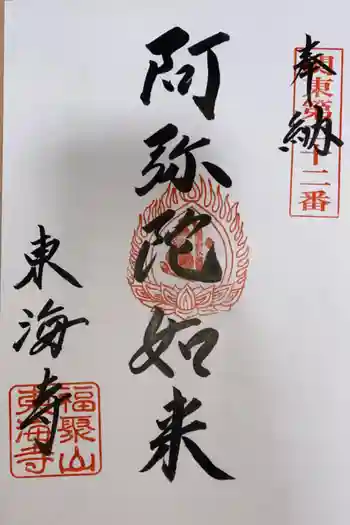 奉納
関東第
十二番
阿弥陀如来
東海寺
福聚山
東海寺